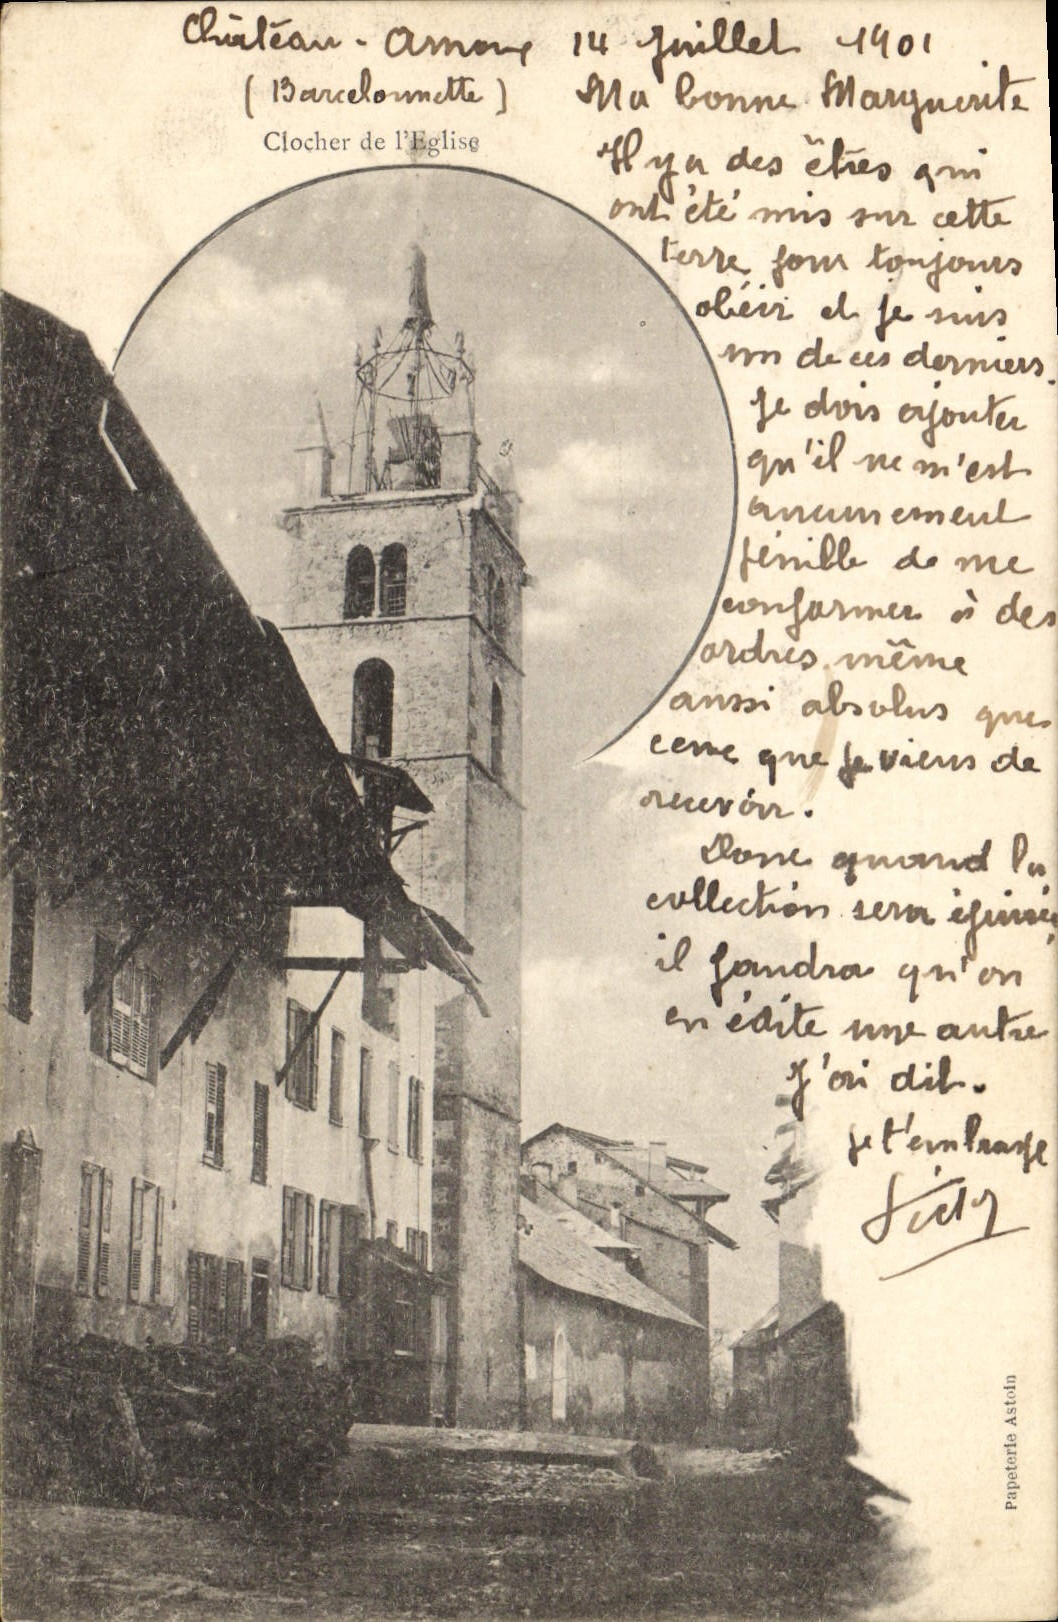 Château-Arnoux 14 Juillet 1901
(Barcelonnette)
Clocher de l'Eglise
Ma bonne Marguerite
Il y a des êtres qui
ont été mis sur cette
terre pour toujours
obéir et je suis
un de ces derniers.
Je dois ajouter
qu'il ne m'est
aucunement
pénible de me
conformer à des
ordres même
aussi absolus que
ceux que je viens de
recevoir.
Donc quand la
collection sera épuisée
il faudra qu'on
en édite une autre
J'ai dit.
Je t'embrasse
Papeterie Astoin